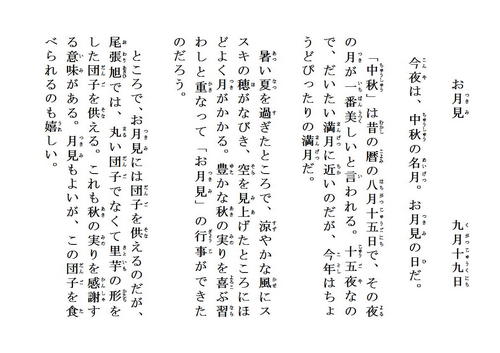 お月見　九月十九日
今夜は、中秋の名月。お月見の日だ。
「中秋」は昔の暦の八月十五日で、その夜
の月が一番美しいと言われる。十五夜なの
で、だいたい満月に近いのだが、今年はちょ
うどぴったりの満月だ。
暑い夏を過ぎたところで、涼やかな風にス
スキの穂がなびき、空を見上げたところにほ
どよく月がかかる。豊かな秋の実りを喜ぶ習
わしと重なって「お月見」の行事ができた
のだろう。
ところで、お月見には団子を供えるのだが、
尾張旭では、丸い団子でなくて里芋の形を
した団子を供える。これも秋の実りを感謝す
る意味がある。月見もよいが、この団子を食
べられるのも嬉しい。